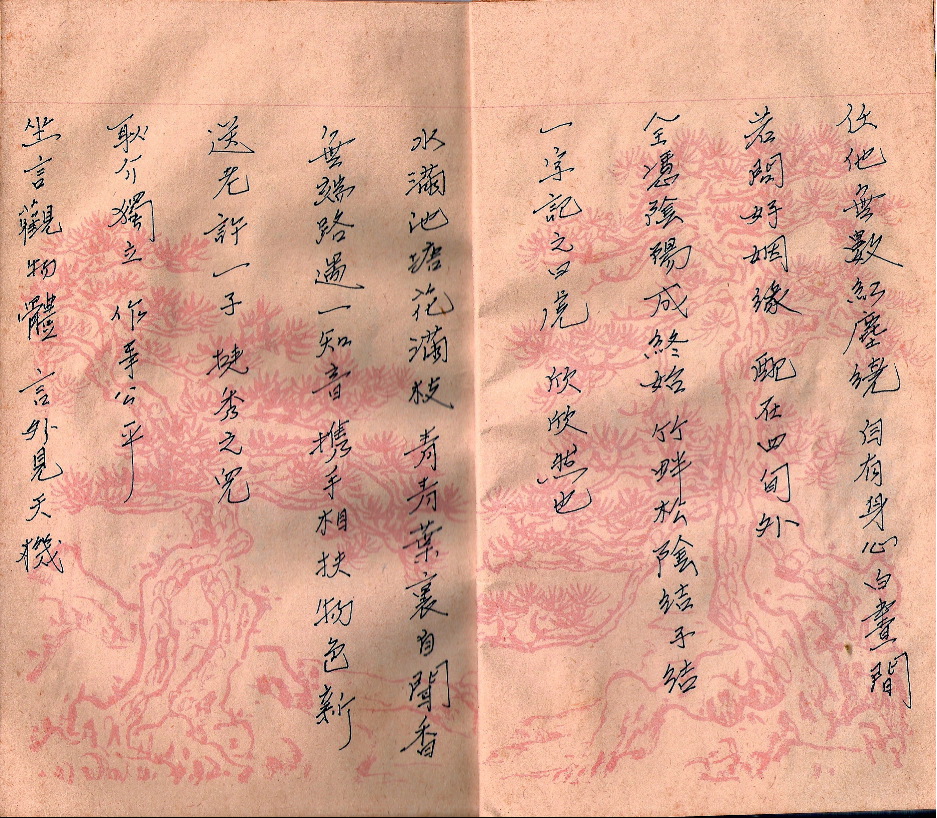 任他無數紅塵繞 自有身心白晝閒
若問好姻緣 配在四旬外
全憑陰陽成終始 竹畔松陰結子結
一字記之曰虎 欣欣然也
水滿池塘花滿枝 青青葉裏自聞香
無端路遇一知音 携手相扶物色新
送老許一子 挺秀之兒
耿介獨立 作事公平
坐言觀物體 言外見天機